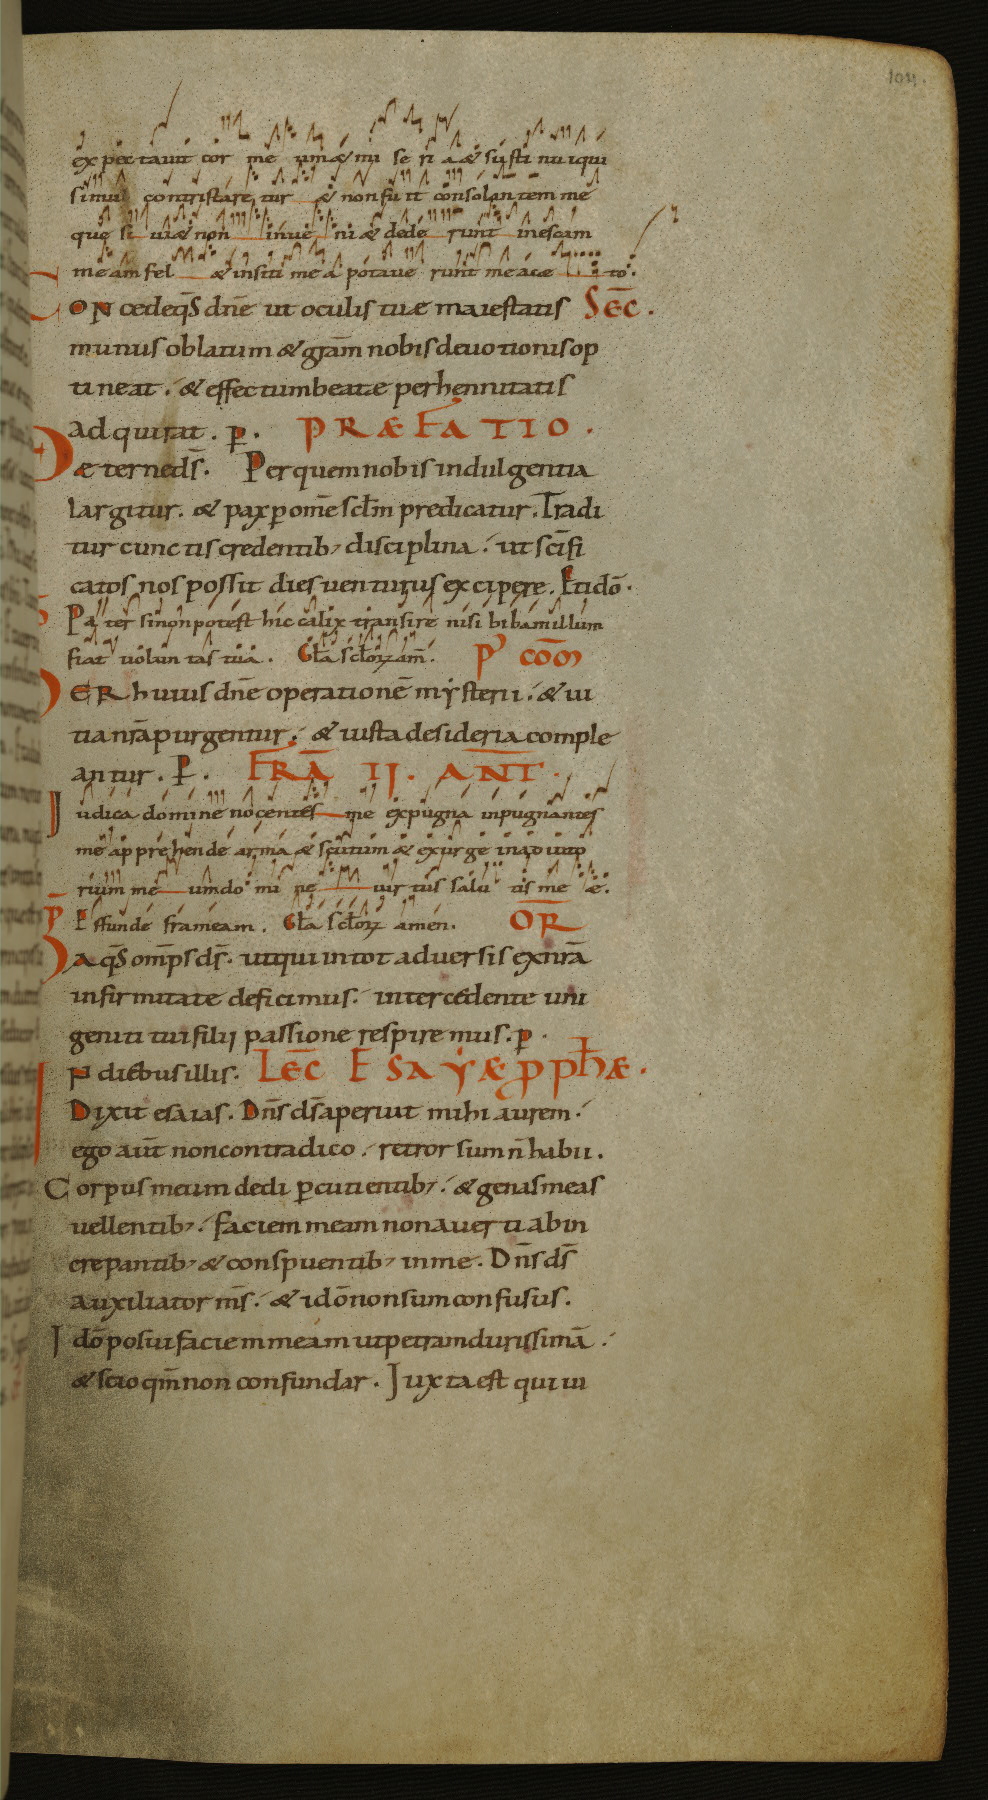 104.
expectavit cor me um & mi se ri a & sustinui qui
simul contristare tur & non fu it consolantem me
quesi vi & non inve ni & dede runt in escam
meam fel & in siti mea potave runt me ace to.
Con cedeq̄s dn̄e ut oculis tuæ maiestatis Sēc.
munus oblatum & grām nobis devotionis op
tineat. & effectum beatæ perhennitatis
adquirat. p̱. PRÆFATIO.
D æterne ds̄. Per quem nobis indulgentia
largitur. & pax p̱ om̄e sclm̄ predicatur. Tradi
tur cunctis credentib; disciplina. ut scīfi
catos nos possit dies venturus excipere. Et idō.
Pater si non potest hic calix transire nisi bibam illum
fiat voluntas tua. Gła scłoꝝ am̄. P' cōm
PER huius dn̄e operationē mẏsterii. & vi
tia nr̄a purgentur. & iusta desideria comple
antur. P̱. FR̄A II. ANT̄.
Iudica domine nocentes me expugna inpugnantes
me apprehende arma & scutum & exurge in adiuto
rium me um do mi ne vir tus salu tis me æ.
P̄ Effunde frameam. Gła scłoꝝ amen. OR̄
Da q̄s om̄ps ds̄. ut qui in tot adversis ex nr̄a
infirmitate deficimus. intercedente uni
geniti tui filij passione respiremus. p̱.
IN diebus illis. LEC̄ ESAẎÆ PROPHÆ.
Dixit esaias. Dn̄s ds̄ aperuit mihi aurem.
ego aut̄ non contradico. retrorsum n̄ habii.
Corpus meum dedi p̱cutientib;. & genas meas
vellentib;. faciem meam non averti ab in
crepantib; & conspuentib; in me. Dn̄s ds̄
auxiliator ms̄. & idō non sum confusus.
Idō posui faciem meam ut petram durissimā.
& scio qm̄ non confundar. Iuxta est qui iu